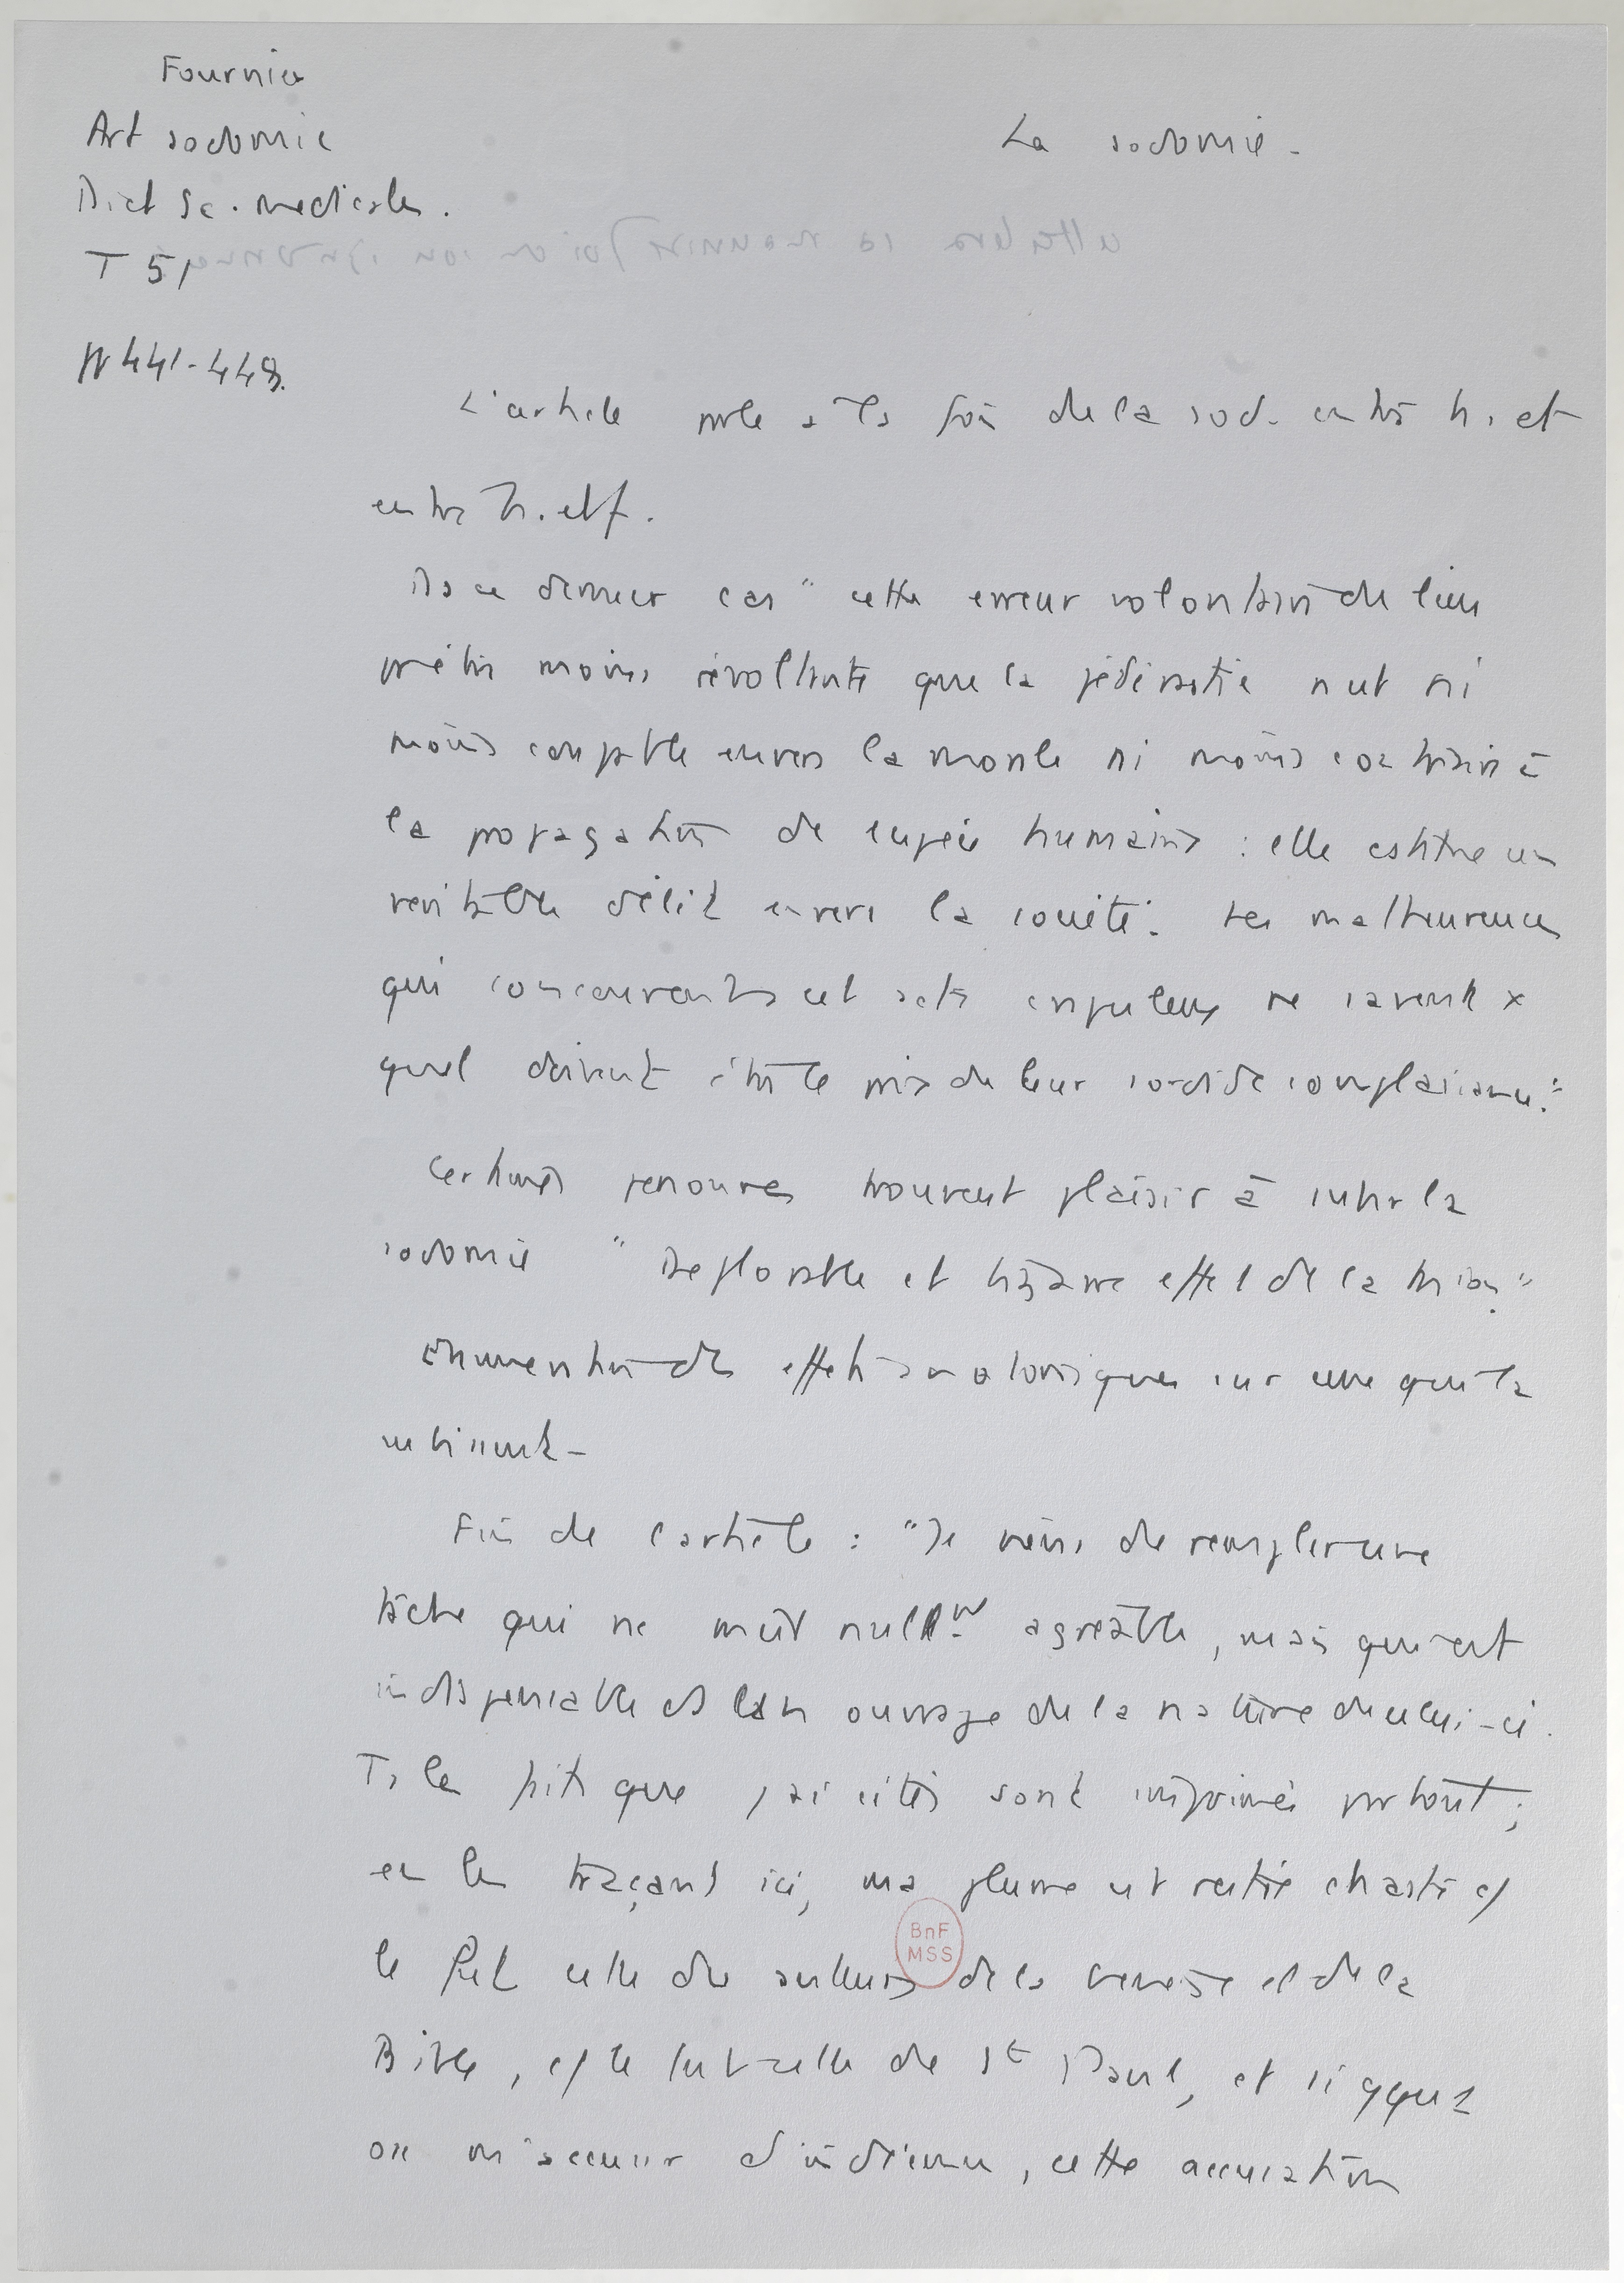 Fournier
Art sodomie
Dict Sc. medicales.
T 51
pp 441-448.
La sodomie.
L'article parle à la fois de la sod. entre h. et
entre h. et f.
Ds ce dernier cas "cette erreur volontaire de lieu
pr être moins révoltante que la pédérastie n'est ni
moins coupable envers la morale ni moins contraire à
la propagation de l'espèce humaine : elle est une
véritable délit envers la société. Les malheureuses
qui concourent à cet acte crapuleux ne savent x
quel doivent être le prix de leur sordide complaisance."
Certaines personnes trouvent plaisir à subir la
sodomie "Déplorable et bizarre effet de la
Enumération des effets anatomiques sur ceux qui la
subissent -
Fin de l'article : "Je viens de remplir une
tâche qui ne m'était nullmt agréable, mais qui est
indispensable ds un ouvrage de la nature de celui-ci.
Ts les faits que j'ai cités sont imprimés partout ;
en les traçant ici, ma plume est restée chaste c/
le fut celle des auteurs de la Genèse et de la
Bible, c/ le fut celle de St Paul, et si qqu'1
ose m'accuser d'indécence, cette accusation
BnF
MSS